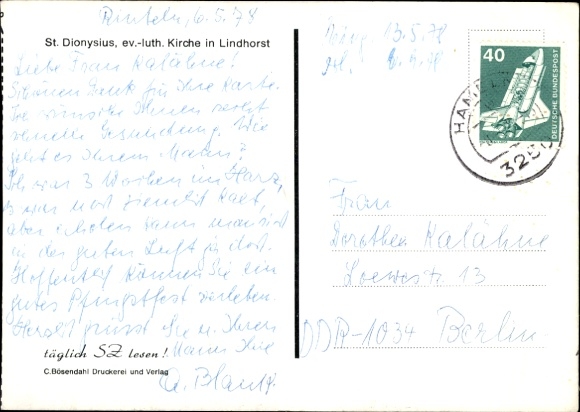 Rinteln, 6.5.78
St. Dionysius, ev.-luth. Kirche in Lindhorst
Liebe Frau Kalähne!
Schönen Dank für Ihre Karte.
Ich wünsche Ihnen recht
schnelle Genesung. Wie
geht es Ihrem Mann?
Ich war 3 Wochen im Harz,
es war noch ziemlich kalt,
aber erholen kann man sich
in der guten Luft ja dort.
Hoffentlich können Sie ein
gutes Pfingstfest verleben.
Herzlich grüsst Sie u. Ihren
Mann Ihre
täglich SZ lesen!
C.Bösendahl Druckerei und Verlag
13.5.78
40
DEUTSCHE BUNDESPOST
HAM
325
Frau
Dorothea Kalähne
13
DDR-1034 Berlin